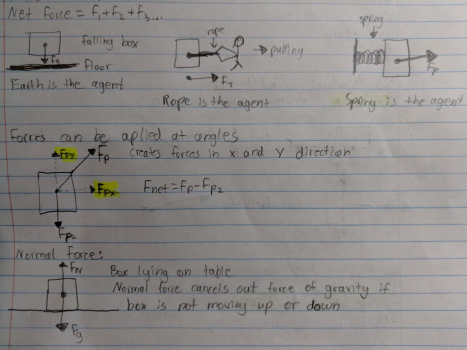 Net force = F1+F2+F3...
falling box
Fg
floor
Earth is the agent
rope
pulling
FT
Rope is the agent
spring
Fp
Spring is the agent
Forces can be aplied at angles
FPY
Fp
creates forces in x and Y direction
FPX
Fnet=Fp-Fp2
Fp2
Normal force:
FN
Box lying on table
Normal force cancels out force of gravity if
box is not moving up or down
Fg